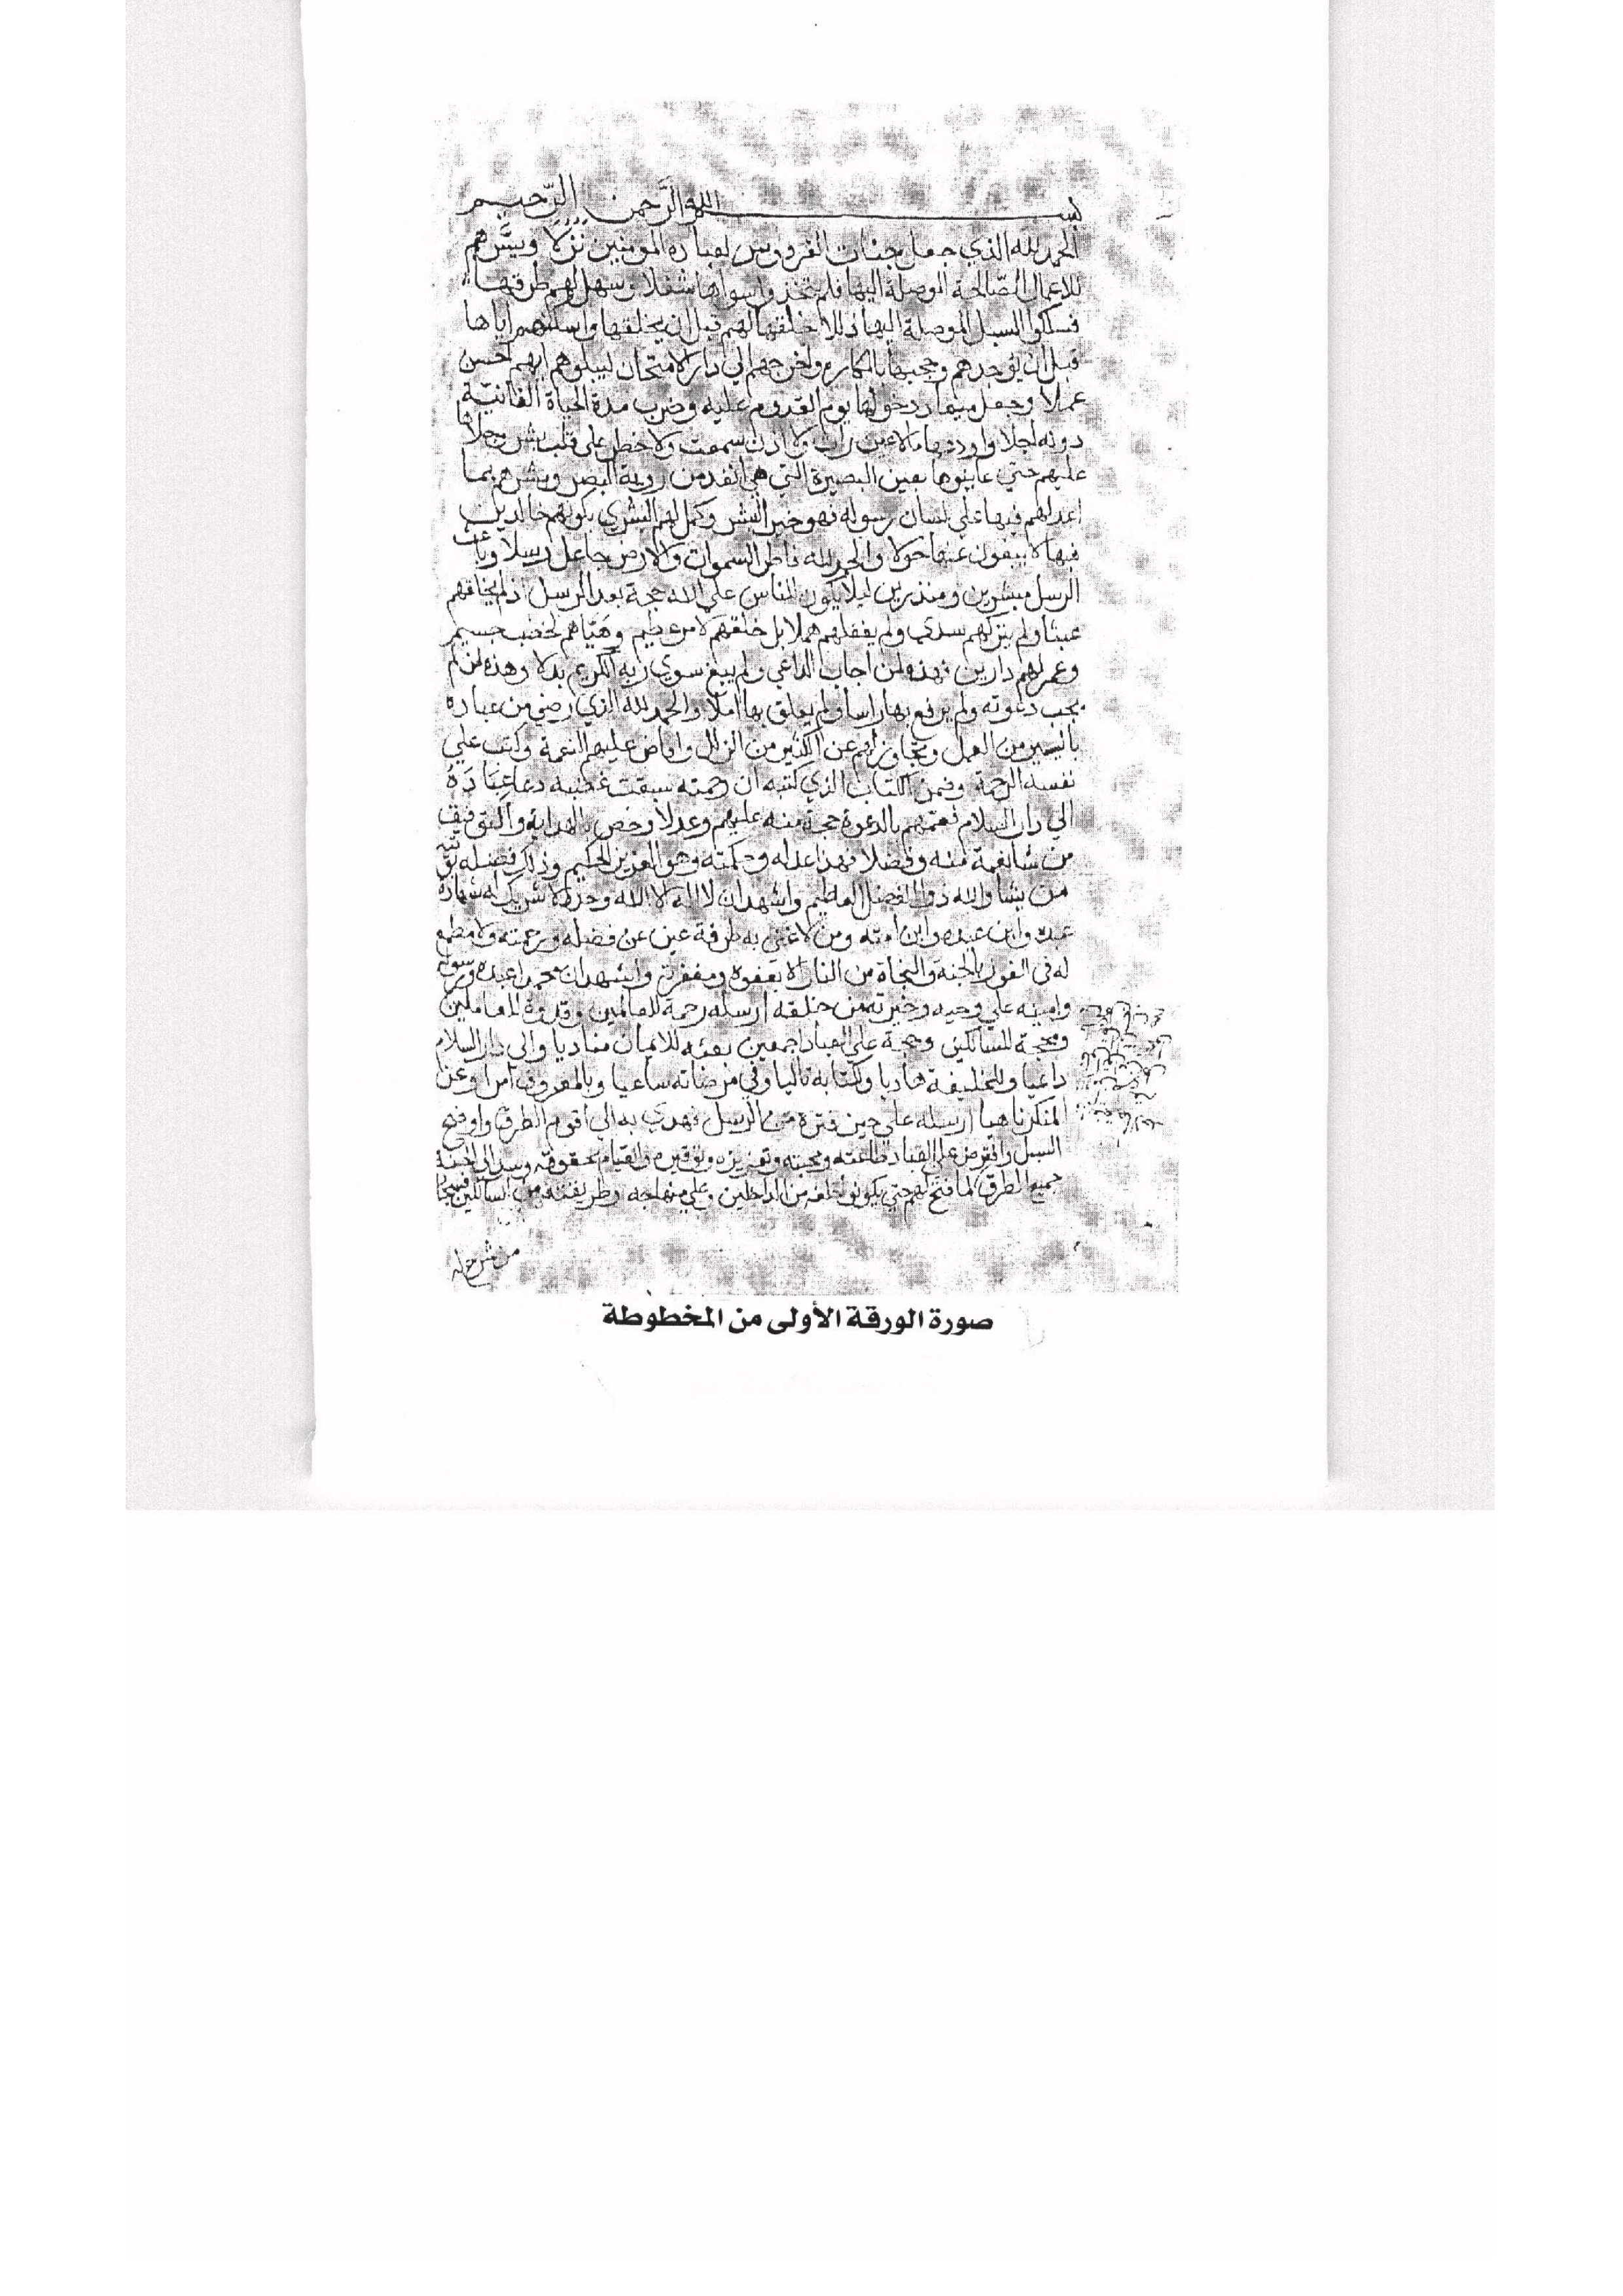 بسم الله الرَّحمن الرّحيم
الحمد لله الذي جعل جنات الفردوس لعباده المومنين نُزُلًا ويسَّرهم
للاعمال الصّالحة الموصلة اليها فلم يتخذوا سواها شغلا وسهل لهم طرقها
فسلكوا السبيل الموصلة اليها ذللا خلقها لهم قبل ان يخلقهم واسكنهم اياها
قبل ان يوجدهم وحجبها بالمكاره واخرجهم الي دار الامتحان ليبلوهم ايهم احسن
عملا وجعل ميعاد دخولها يوم القدوم عليه وضرب مدة الحياة الفانية
دونه اجلا واودعها ما لا عين رات ولا اذن سمعت ولا خطر علي قلب بشر وجلاها
عليهم حتي عاينوها بعين البصيرة التي هي انفذ من روية البصر وبشرهم بما
اعد لهم فيها علي لسان رسوله فهو خير البشر وكمل لهم البشري بكونهم خالدين
فيها لا يبغون عنها حولا والحمد لله فاطر السموات والارض جاعل رسلا وباعث
الرسل مبشرين ومنذرين ليلا يكون للناس علي الله حجة بعد الرسل اذ لم يخلقهم
عبثا ولم يتركهم سدي ولم يغفلهم هملا بل خلقهم لامر عظيم وهَيّاهم لخطب جسيم
وعمر لهم دارين فهذه لمن اجاب الداعي ولم يبغ سوي ربه الكريم بدلا وهذه لمن لم
يجب دعوته ولم يرفع بها راسا ولم يعلق بها املا والحمد لله الذي رضي من عباده
باليسير من العمل وتجاوز لهم عن الكثير من الزلل وافاض عليهم النعمة وكتب علي
نفسه الرحمة وضمن الكتاب الذي كتبه ان رحمته سبقت غضبه دعا عِبَادَهُ
الي دار السلام فعمهم بالدعوة حجة منه عليهم وعدلا وخص بالهداية والتوفيق
من شا نعمة منه وفضلا فهذا عدله وحكمته وهو العزيز الحكيم وذلك فضله يوتيه
من يشا والله ذو الفضل العظيم واشهد ان لا اله الا الله وحده لا شريك له شهادة
عبده وابن عبده وابن امته ومن لا غني به طرفة عين عن فضله ورحمته ولا مطمع
له في الفوز بالجنة والنجاة من النار الا بعفوه ومغفرته واشهد ان محمدا عبده ورسوله
وامينه علي وحيه وخيرته من خلقه ارسله رحمة للعالمين وقدوة للعاملين
ومحجة للسالكين وحجة علي العباد اجمعين بعثه للايمان مناديا والي دار السلام
داعيا وللخليقة هاديا ولكتابه تاليا وفي مرضاته ساعيا وبالمعروف آمرا وعن
المنكر ناهيا ارسله علي حين فترة من الرسل فهدي به الي اقوم الطرق واوضح
السبل وافترض علي العباد طاعته ومحبته وتعزيره وتوقيره والقيام بحقوقه وسد الي الجنة
جميع الطرق فما فتح لهم حتي يكونوا خلفه من الداخلين وعلي منهاجه وطريقته من السالكين فسبحان
من شرح له
صورة الورقة الأولى من المخطوطة